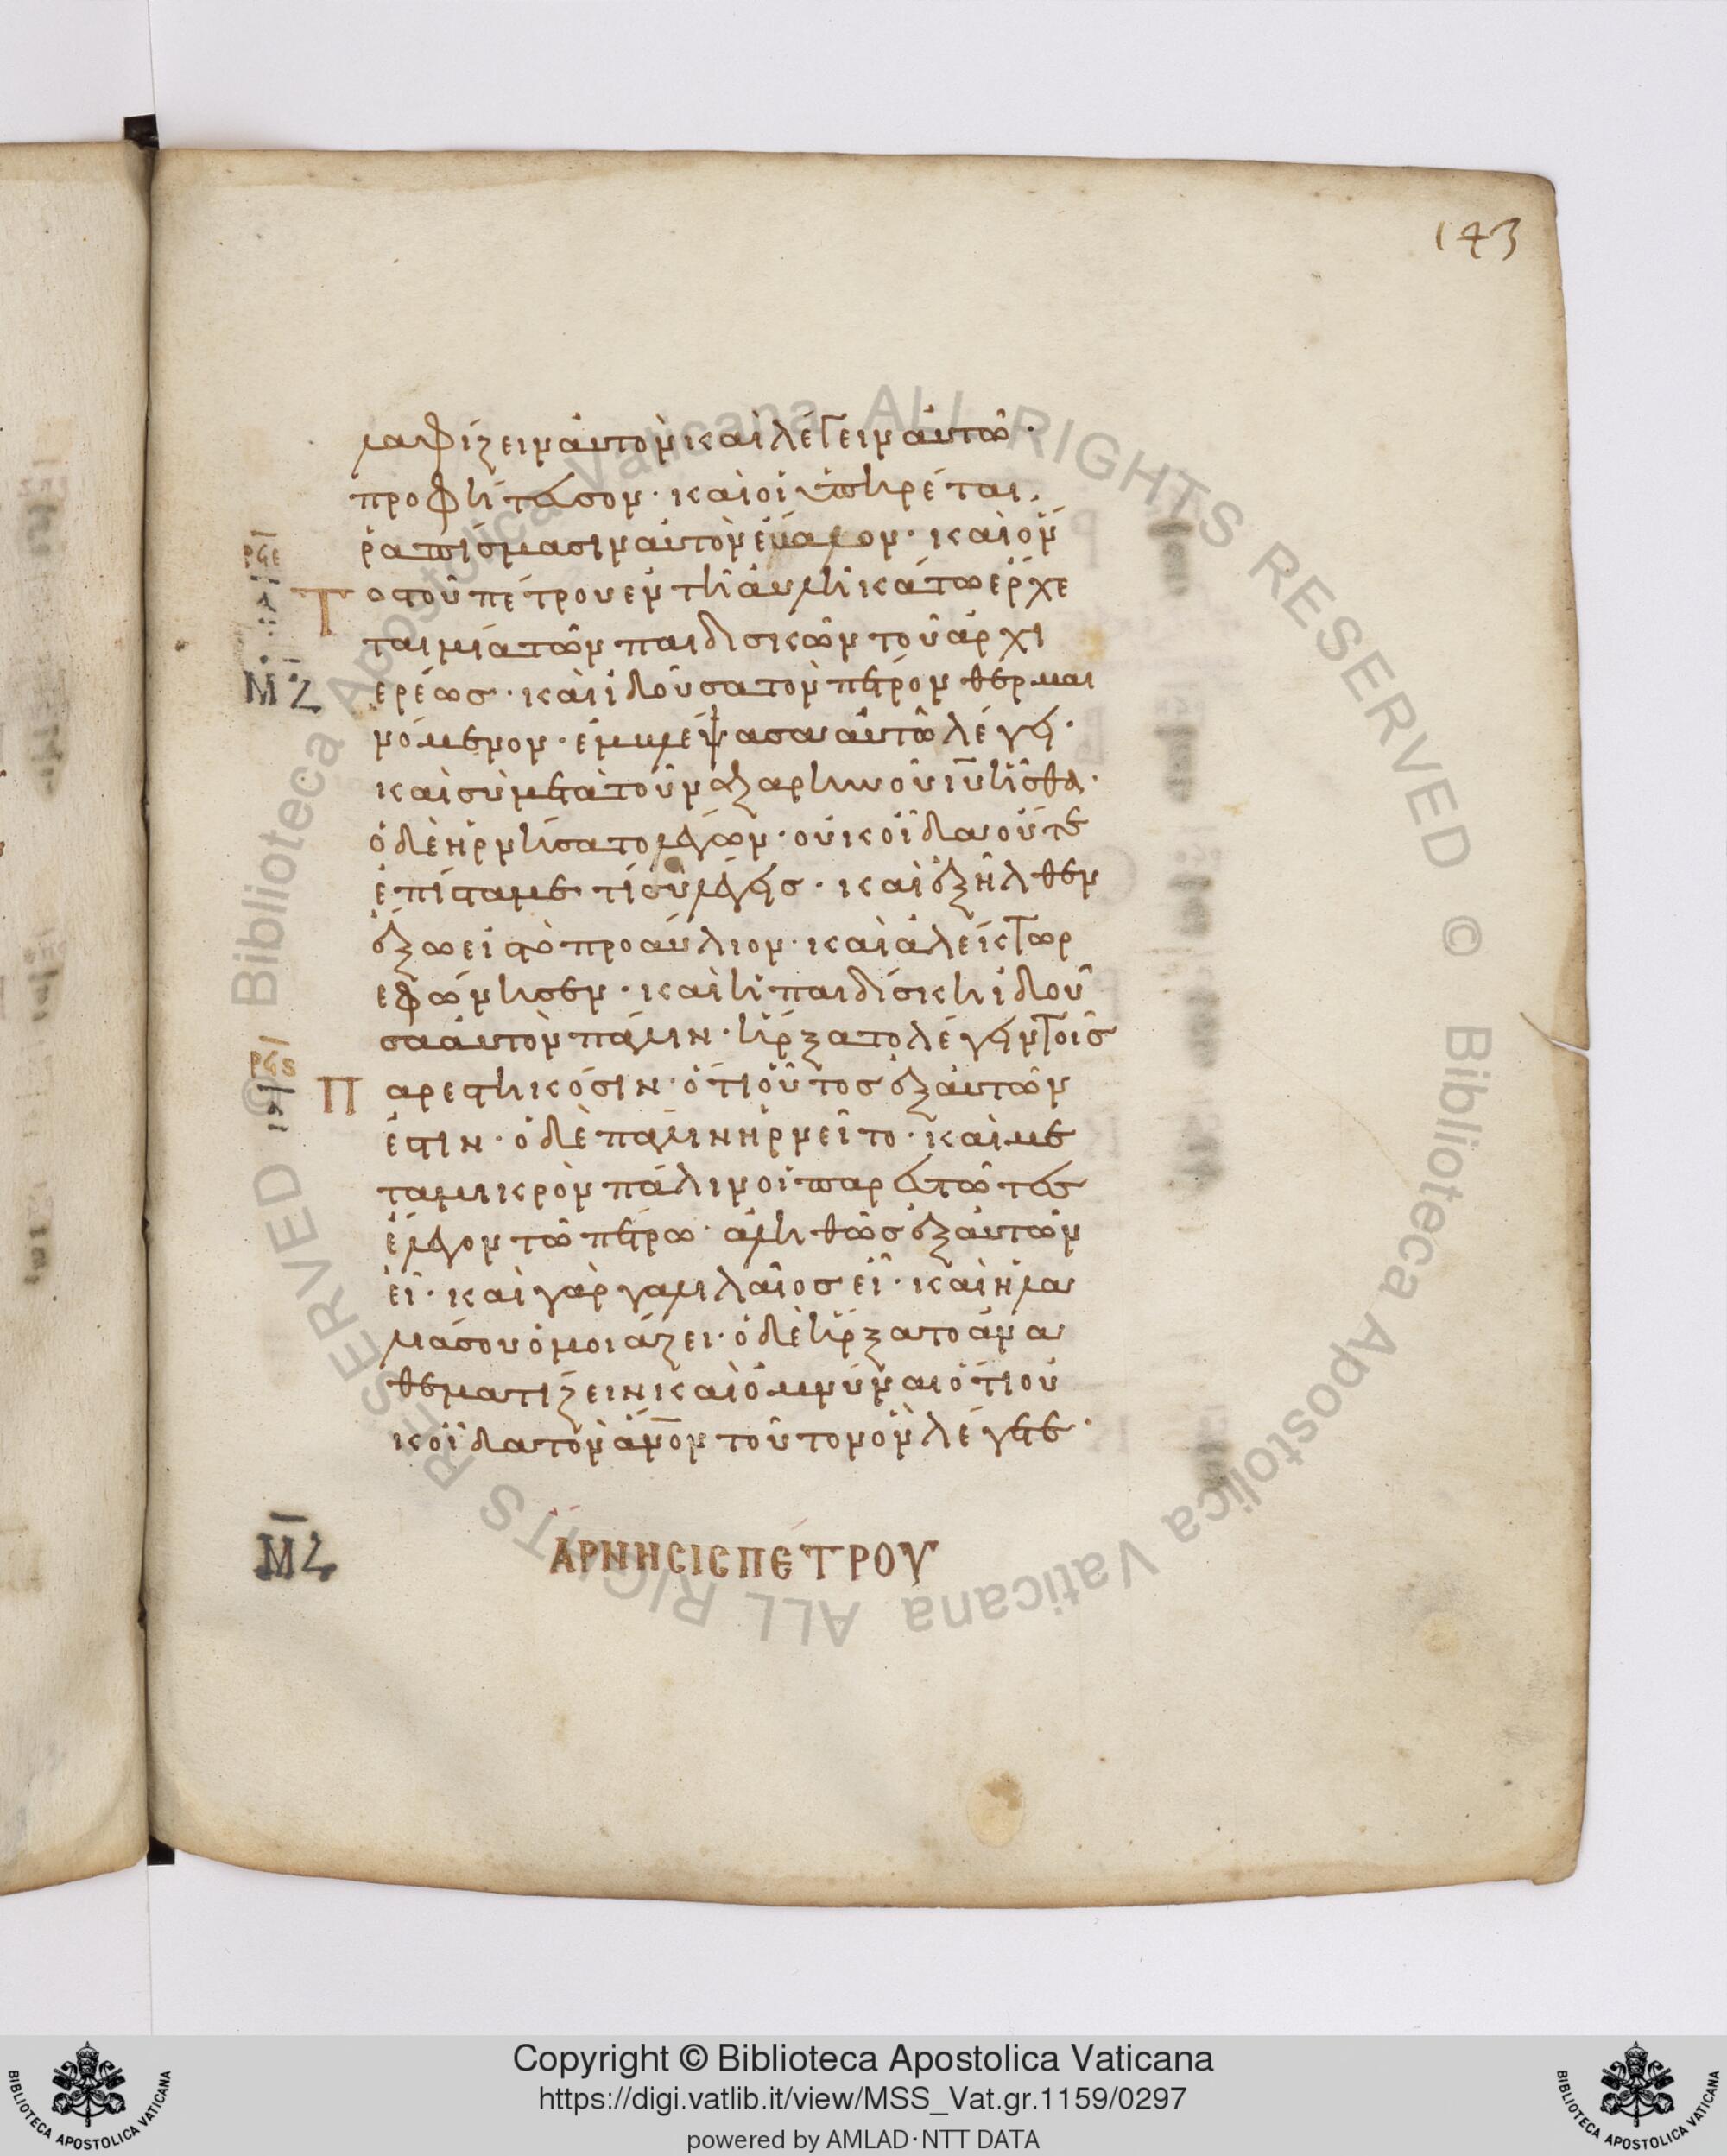 143
λαφίζειν αὐτὸν καὶ λέγειν αὐτῶ·
προφήτευσον· καὶ οἱ ὑπηρέται
ῥαπίσμασιν αὐτὸν ἔβαλον· καὶ ὄν
ρϟε
Τ οτοῦ πέτρου ἐν τῆ αὐλῆ κάτω ἔρχε
ται μία τῶν παιδισκῶν τοῦ ἀρχι
ΜΖ ερέως· καὶ ἰδοῦσα τὸν πέτρον θερμαι
νόμενον· ἐμβλέψασα αὐτῶ λέγει·
καὶ σὺ μετὰ τοῦ ναζαρηνοῦ ἰῦ ἦσθα·
ὁ δὲ ἠρνήσατο λέγων· οὐκ οἶδα οὔτε
ἐπίσταμαι τί σὺ λέγεις· καὶ ἐξῆλθεν
ἔξω εἰς τὸ προαύλιον· καὶ ἀλέκτωρ
ἐφώνησεν· καὶ ἡ παιδίσκη ἰδοῦ
σα αὐτὸν πάλιν· ἤρξατο λέγειν τοῖς
ρϟϛ
Π αρεστηκόσιν· ὅτι οὗτος ἐξ αὐτῶν
ἐστιν· ὁ δὲ πάλιν ἠρνεῖτο· καὶ με
τα μικρὸν πάλιν οἱ παρεστῶτες
ἔλεγον τῶ πέτρω· ἀληθῶς ἐξ αὐτῶν
εἶ· καὶ γὰρ γαλιλαῖος εἶ· καὶ ἡ λα
λιά σου ὁμοιάζει· ὁ δὲ ἤρξατο ἀνα
θεματίζειν καὶ ὀμνύναι ὅτι οὐ
κ οἶδα τὸν ἄνον τοῦτον ὃν λέγετε·
ΜΖ ἈΡΝΗCΙC ΠΈΤΡΟΥ
Copyright © Biblioteca Apostolica Vaticana
https://digi.vatlib.it/view/MSS_Vat.gr.1159/0297
powered by AMLAD·NTT DATA
BIBLIOTECA APOSTOLICA VATICANA
BIBLIOTECA APOSTOLICA VATICANA
Biblioteca Apostolica Vaticana ALL RIGHTS RESERVED © Biblioteca Apostolica Vaticana ALL RIGHTS RESERVED ©